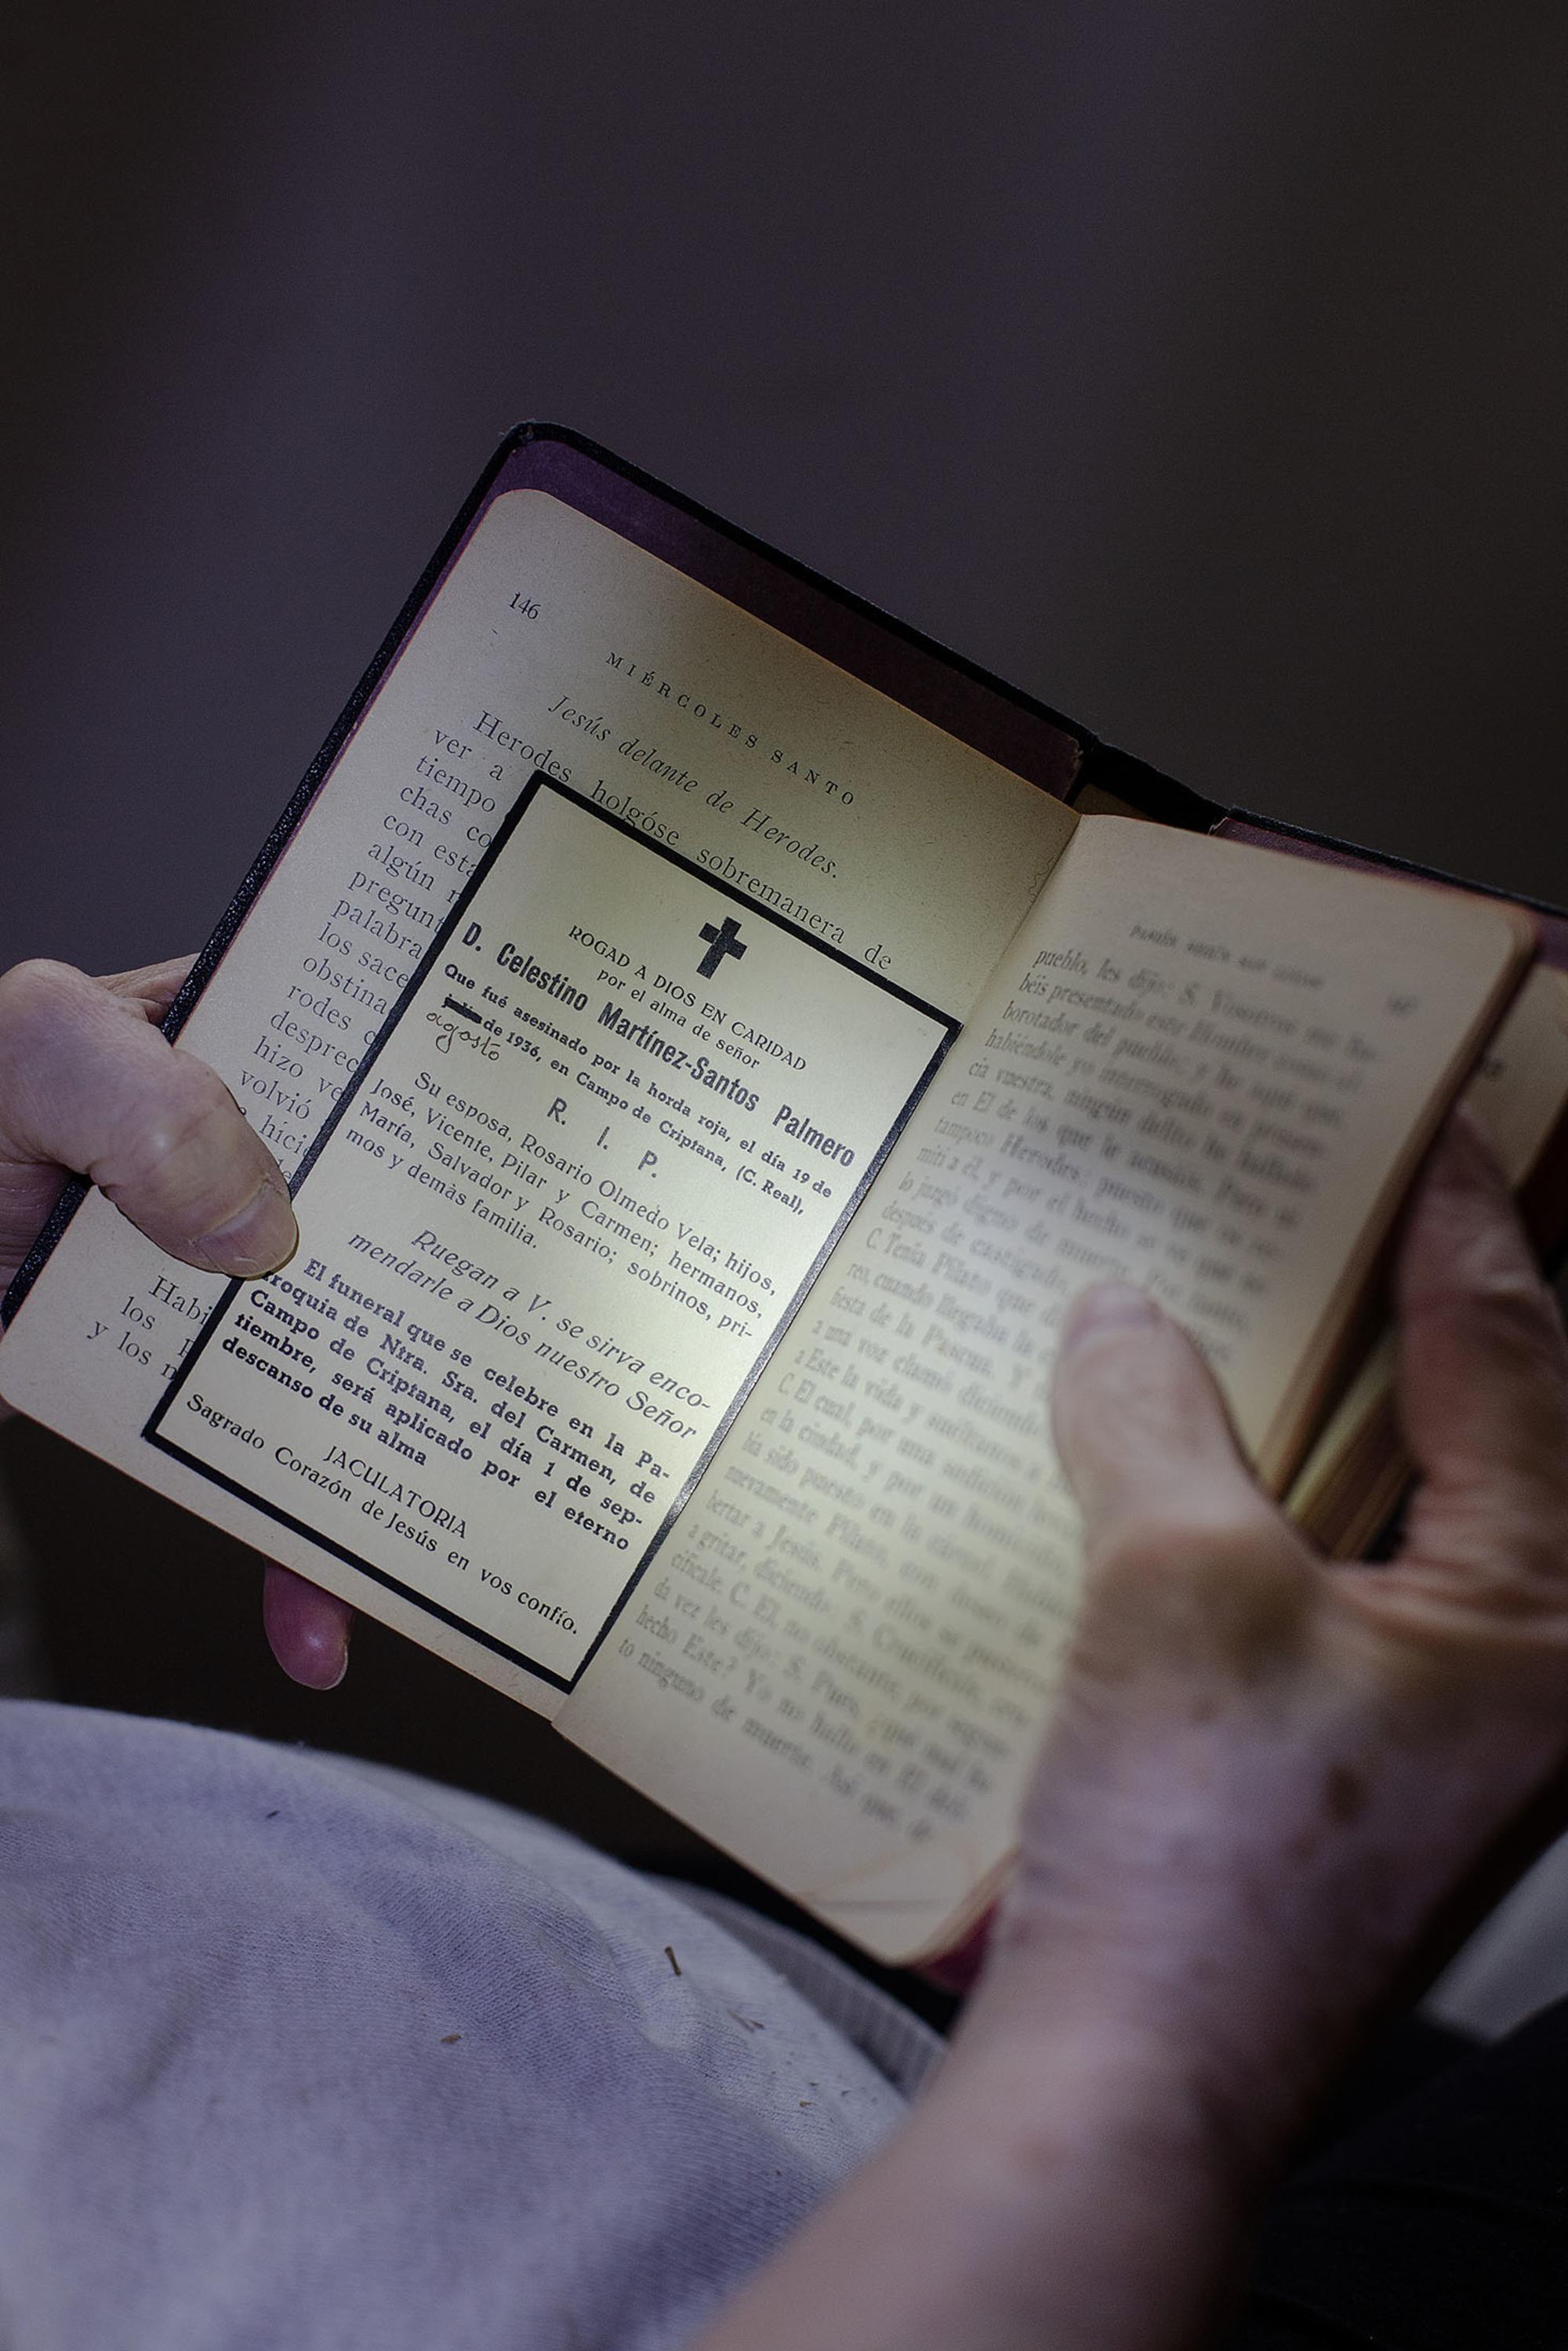 146
MIÉRCOLES SANTO
Jesús delante de Herodes.
Herodes holgóse sobremanera de
ver a
tiempo
chas co
con esta
algún
pregunt
palabra
los sace
obstina
rodes
desprec
hizo ve
volvió
hici
Habi
los
y los
ROGAD A DIOS EN CARIDAD
por el alma de señor
D. Celestino Martínez-Santos Palmero
Que fué asesinado por la horda roja, el día 19 de
julio de 1936, en Campo de Criptana, (C. Real),
agosto
R. I. P.
Su esposa, Rosario Olmedo Vela; hijos,
José, Vicente, Pilar y Carmen; hermanos,
María, Salvador y Rosario; sobrinos, pri-
mos y demàs familia.
Ruegan a V. se sirva enco-
mendarle a Dios nuestro Señor
El funeral que se celebre en la Pa-
rroquia de Ntra. Sra. del Carmen, de
Campo de Criptana, el día 1 de sep-
tiembre, será aplicado por el eterno
descanso de su alma
JACULATORIA
Sagrado Corazón de Jesús en vos confío.
pueblo, les dijo: S. Vosotros me ha-
béis presentado este Hombre como al-
borotador del pueblo, y he aquí que,
habiéndole yo interrogado en presen-
cia vuestra, ningún delito he hallado
en El de los que le acusáis. Pero
tampoco Herodes; puesto que os re-
mití a él, y por el hecho se ve que no
lo juzgó digno de muerte. Por tanto,
después de castigado
C. Tenía Pilato que
reo, cuando llegaba la
fiesta de la Pascua. Y
a una voz clamó diciendo:
a Este la vida y suéltanos a
C. El cual, por una sedición
en la ciudad, y por un homicidio
bía sido puesto en la cárcel.
nuevamente Pilato,
bertar a Jesús. Pero ellos se pusieron
a gritar, diciendo: S. Crucifícale, cru-
cifícale. C. El, no obstante, por segun-
da vez les dijo: S. Pues, ¿qué mal ha
hecho Este? Yo no hallo en El deli-
to ninguno de muerte. Así que, de